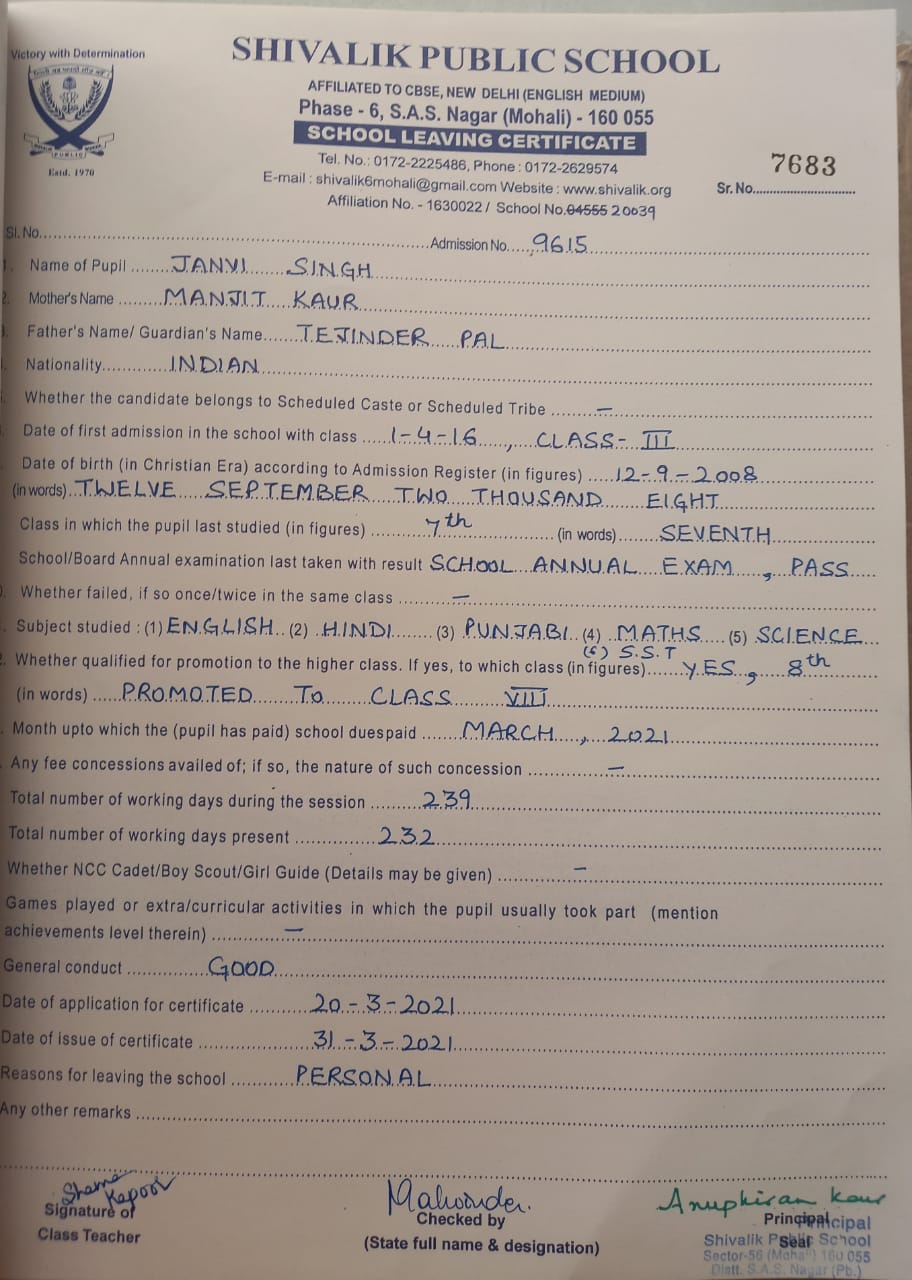 Victory with Determination
SHIVALIK PUBLIC SCHOOL
AFFILIATED TO CBSE, NEW DELHI (ENGLISH MEDIUM)
Phase - 6, S.A.S. Nagar (Mohali) - 160 055
SCHOOL LEAVING CERTIFICATE
PUBLIC
Estd. 1970
Tel. No.: 0172-2225486, Phone : 0172-2629574
E-mail : shivalik6mohali@gmail.com Website : www.shivalik.org
Sr. No. 7683
Affiliation No. - 1630022 / School No. 04555 20039
Sl. No. Admission No. 9615
Name of Pupil JANVI SINGH
Mother's Name MANJIT KAUR
Father's Name/ Guardian's Name TEJINDER PAL
Nationality INDIAN
Whether the candidate belongs to Scheduled Caste or Scheduled Tribe —
Date of first admission in the school with class 1-4-16, CLASS- III
Date of birth (in Christian Era) according to Admission Register (in figures) 12-9-2008
(in words) TWELVE SEPTEMBER TWO THOUSAND EIGHT
Class in which the pupil last studied (in figures) 7th (in words) SEVENTH
School/Board Annual examination last taken with result SCHOOL ANNUAL EXAM, PASS
Whether failed, if so once/twice in the same class —
Subject studied : (1) ENGLISH (2) HINDI (3) PUNJABI (4) MATHS (5) SCIENCE
(6) S.S.T
Whether qualified for promotion to the higher class. If yes, to which class (in figures) YES, 8th
(in words) PROMOTED TO CLASS VIII
Month upto which the (pupil has paid) school duespaid MARCH, 2021
Any fee concessions availed of; if so, the nature of such concession —
Total number of working days during the session 239
Total number of working days present 232
Whether NCC Cadet/Boy Scout/Girl Guide (Details may be given) —
Games played or extra/curricular activities in which the pupil usually took part (mention
achievements level therein) —
General conduct GOOD
Date of application for certificate 20-3-2021
Date of issue of certificate 31-3-2021
Reasons for leaving the school PERSONAL
Any other remarks
Kapoor
Signature of
Class Teacher
Checked by
(State full name & designation)
Anupkiran Kaur
Principal
Seal
Principal
Shivalik Public School
Sector-56 (Mohali) 160 055
Distt. S.A.S. Nagar (Pb.)